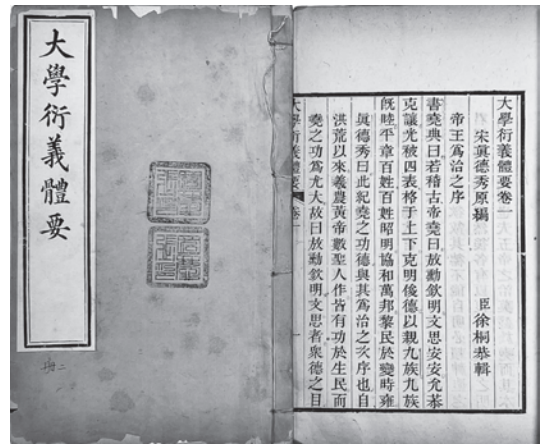 大學衍義體要
大學衍義體要卷一
宋眞德秀原編 臣徐桐恭輯
帝王爲治之序
書堯典曰若稽古帝堯曰放勳欽明文思安安允恭
克讓光被四表格于上下克明俊德以親九族九族
既睦平章百姓百姓昭明協和萬邦黎民於變時雍
眞德秀曰此紀堯之功德與其爲治之次序也自
洪荒以來羲農黃帝數聖人作皆有功於生民而
堯之功爲尤大故曰放勳欽明文思者衆德之目
大學衍義體要 卷一